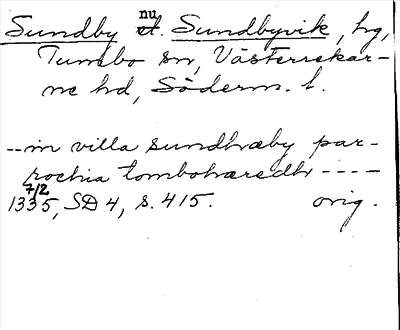 Sundby nu Sundbyvik, hg,
Tumbo sn, Västerrekar-
ne hd, Söderm. l.
--in villa sundhræby par-
rochia tombohæredhr ----
1335 7/2, SD 4, s. 415. orig.